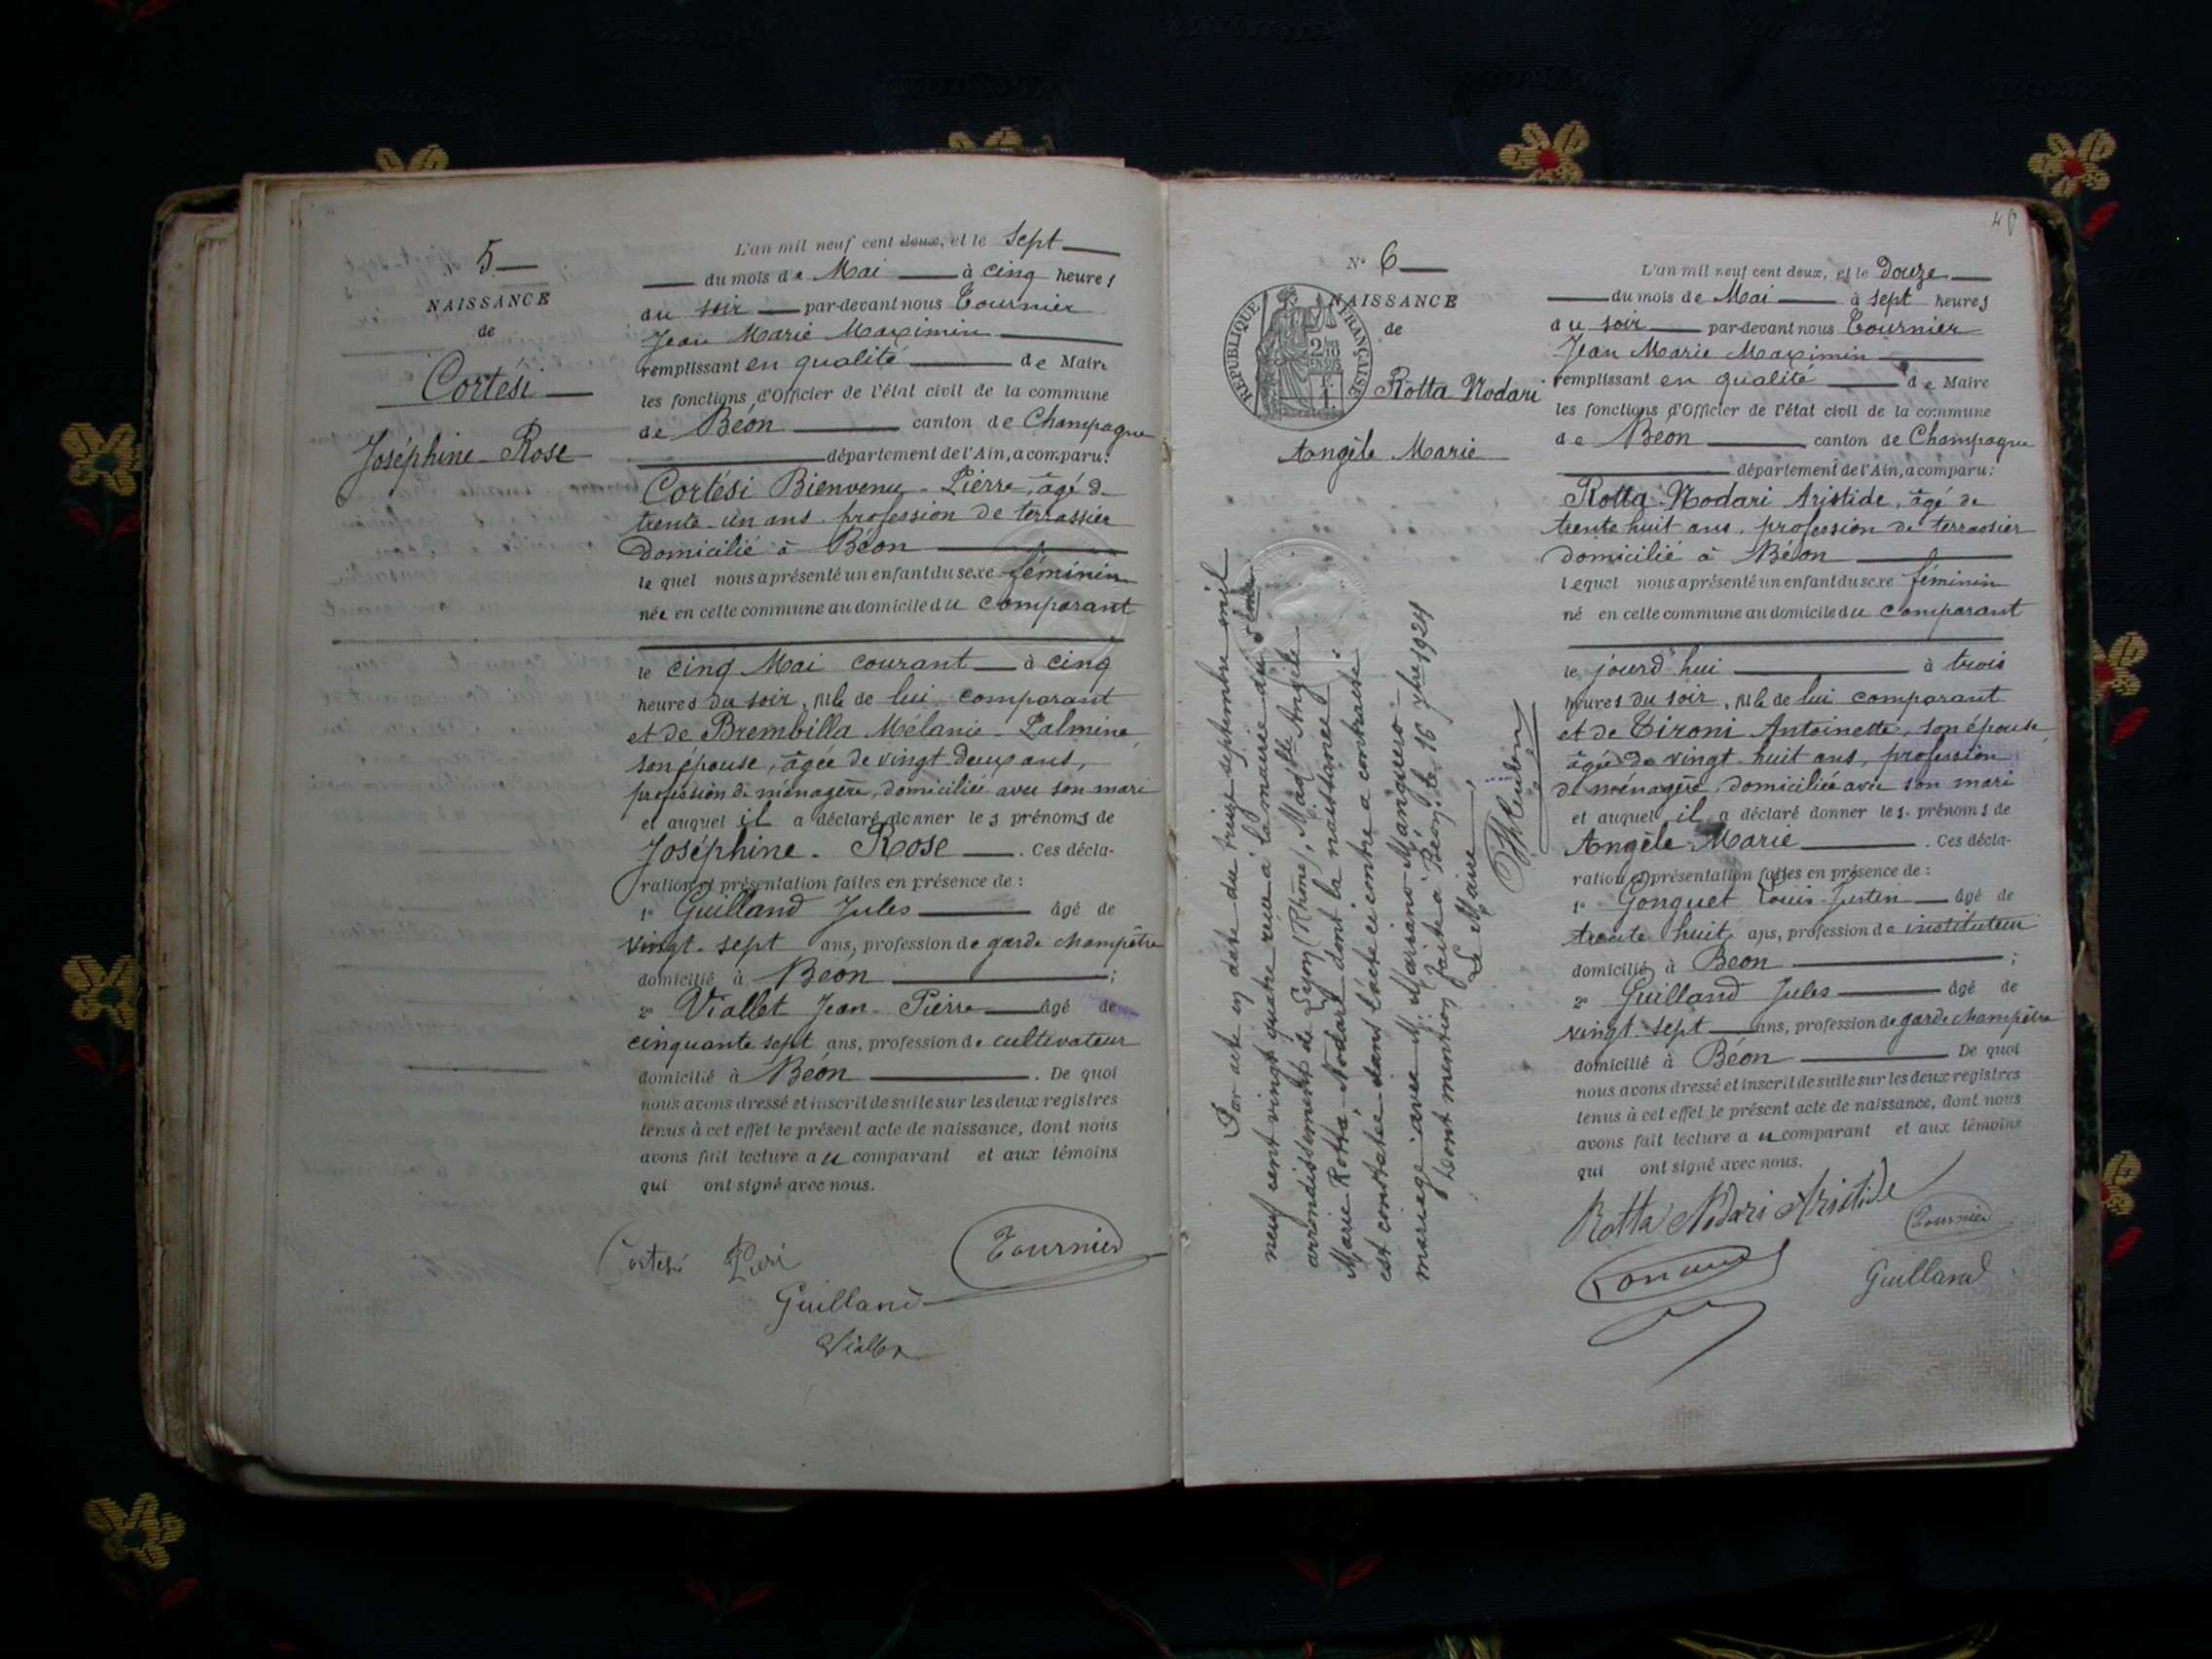 N° 5
NAISSANCE
de
Cortési
Joséphine - Rose
L'an mil neuf cent deux, et le Sept
du mois de Mai à cinq heures
du soir par-devant nous Tournier
Jean Marie Maximin
remplissant en qualité de Maire
les fonctions d'Officier de l'état civil de la commune
de Béon canton de Champagne
département de l'Ain, a comparu:
Cortési Bienvenu - Pierre, âgé de
trente-un ans, profession de terrassier
domicilié à Béon
lequel nous a présenté un enfant du sexe féminin
née en cette commune au domicile du comparant
le cinq Mai courant à cinq
heures du soir, fille de lui comparant
et de Brembilla Mélanie - Palmine,
son épouse, âgée de vingt-deux ans,
profession de ménagère, domiciliée avec son mari
et auquel il a déclaré donner les prénoms de
Joséphine - Rose. Ces décla-
ration et présentation faites en présence de :
1° Guilland Jules âgé de
vingt-sept ans, profession de garde champêtre
domicilié à Béon ;
2° Viallet Jean-Pierre âgé de
cinquante sept ans, profession de cultivateur
domicilié à Béon. De quoi
nous avons dressé et inscrit de suite sur les deux registres
tenus à cet effet le présent acte de naissance, dont nous
avons fait lecture au comparant et aux témoins
qui ont signé avec nous.
Cortesi Tournier
Guilland
Viallet
48
N° 6
NAISSANCE
de
REPUBLIQUE FRANÇAISE
Rotta Nodari
Angèle Marie
Par acte en date du treize septembre mil
neuf cent vingt quatre reçu à la mairie du 5ème
arrondissement de Lyon (Rhône), Madlle Angèle
Marie Rotta-Nodari dont la naissance
est constatée dans l'acte ci contre a contracté
mariage avec M. Mariano Manguero.
Dont mention faite à Béon, le 16 7bre 1924
Le Maire,
L'an mil neuf cent deux, et le Douze
du mois de Mai à sept heures
du soir par-devant nous Tournier
Jean Marie Maximin
remplissant en qualité de Maire
les fonctions d'Officier de l'état civil de la commune
de Béon canton de Champagne
département de l'Ain, a comparu:
Rotta-Nodari Aristide, âgé de
trente huit ans, profession de terrassier
domicilié à Béon
lequel nous a présenté un enfant du sexe féminin
né en cette commune au domicile du comparant
le jourd'hui à trois
heures du soir, fille de lui comparant
et de Tironi Antoinette, son épouse,
âgée de vingt-huit ans, profession
de ménagère, domiciliée avec son mari
et auquel il a déclaré donner les prénoms de
Angèle-Marie. Ces décla-
ration et présentation faites en présence de :
1° Gonguet Louis-Justin âgé de
trente huit ans, profession de instituteur
domicilié à Béon ;
2° Guilland Jules âgé de
vingt-sept ans, profession de garde champêtre
domicilié à Béon De quoi
nous avons dressé et inscrit de suite sur les deux registres
tenus à cet effet le présent acte de naissance, dont nous
avons fait lecture au comparant et aux témoins
qui ont signé avec nous.
Rotta Nodari Aristide
Tournier
Guilland